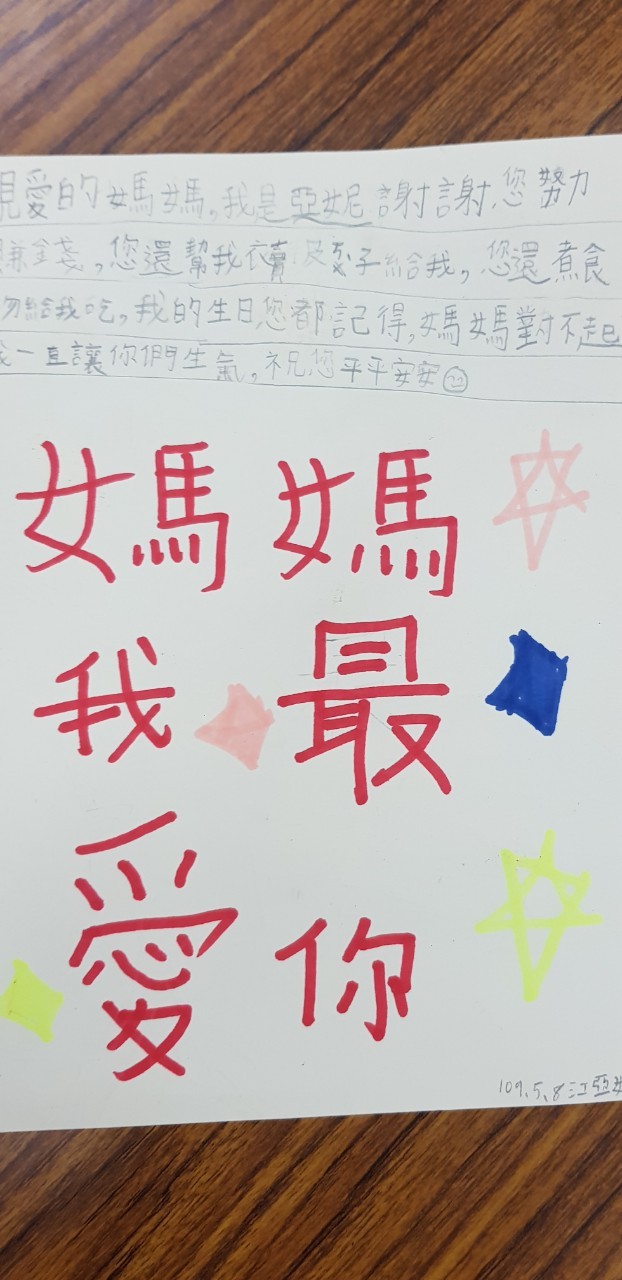 親愛的媽媽,我是亞妮 謝謝,您 努力
賺錢,您還幫我衣賣 子給我,您還煮食
物給我吃,我的生日,您都記得,媽媽對不起
我一直讓你們生氣,祝您平平安安
媽媽
我最
愛你
109.5.8 江亞妮